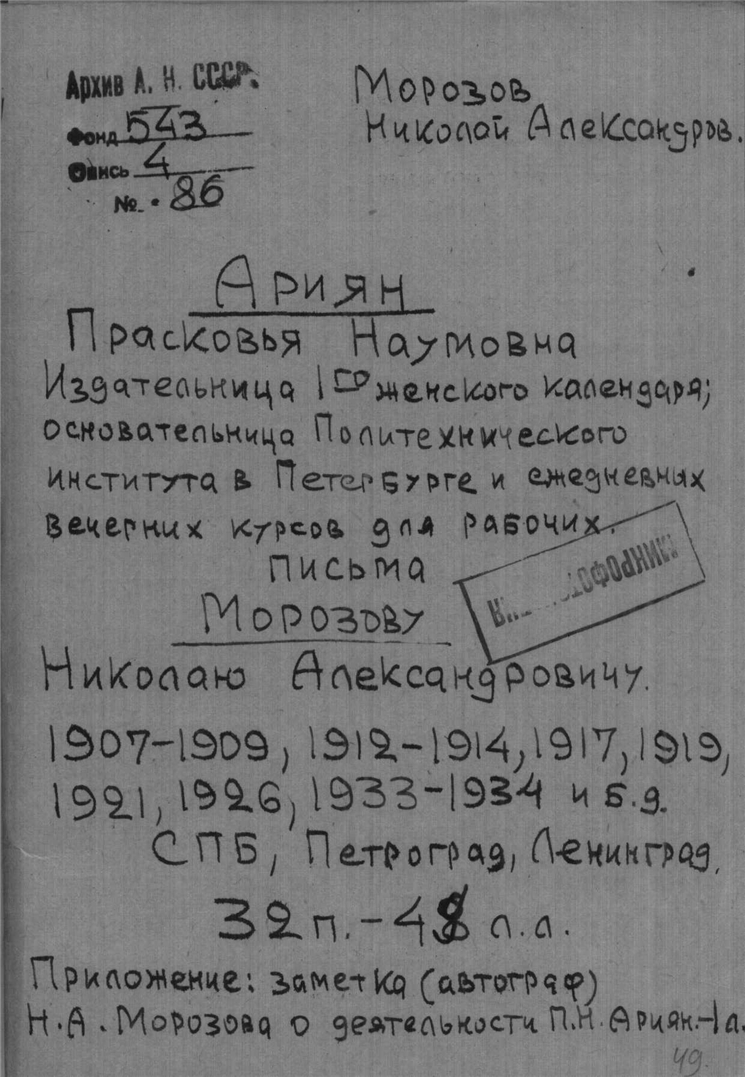 Архив А. Н. СССР.
Фонд 543
Опись 4
№ 86
Морозов
Николай Александров.
Ариян
Прасковья Наумовна
Издательница 1го женского календаря;
основательница Политехнического
института в Петербурге и ежедневных
вечерних курсов для рабочих.
письма
Морозову
Николаю Александровичу.
1907-1909, 1912-1914, 1917, 1919,
1921, 1926, 1933-1934 и б.д.
СПБ, Петроград, Ленинград.
32 п. - 48 л.л.
Приложение: заметка (автограф)
Н.А. Морозова о деятельности П.Н. Ариян.-1л.
49.